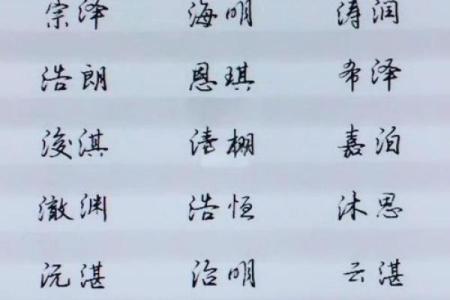 宗泽 海明 涛润
浩朗 恩琪 希泽
浚淇 清栩 嘉泊
澈渊 浩恒 沐思
沅湛 治明 云湛